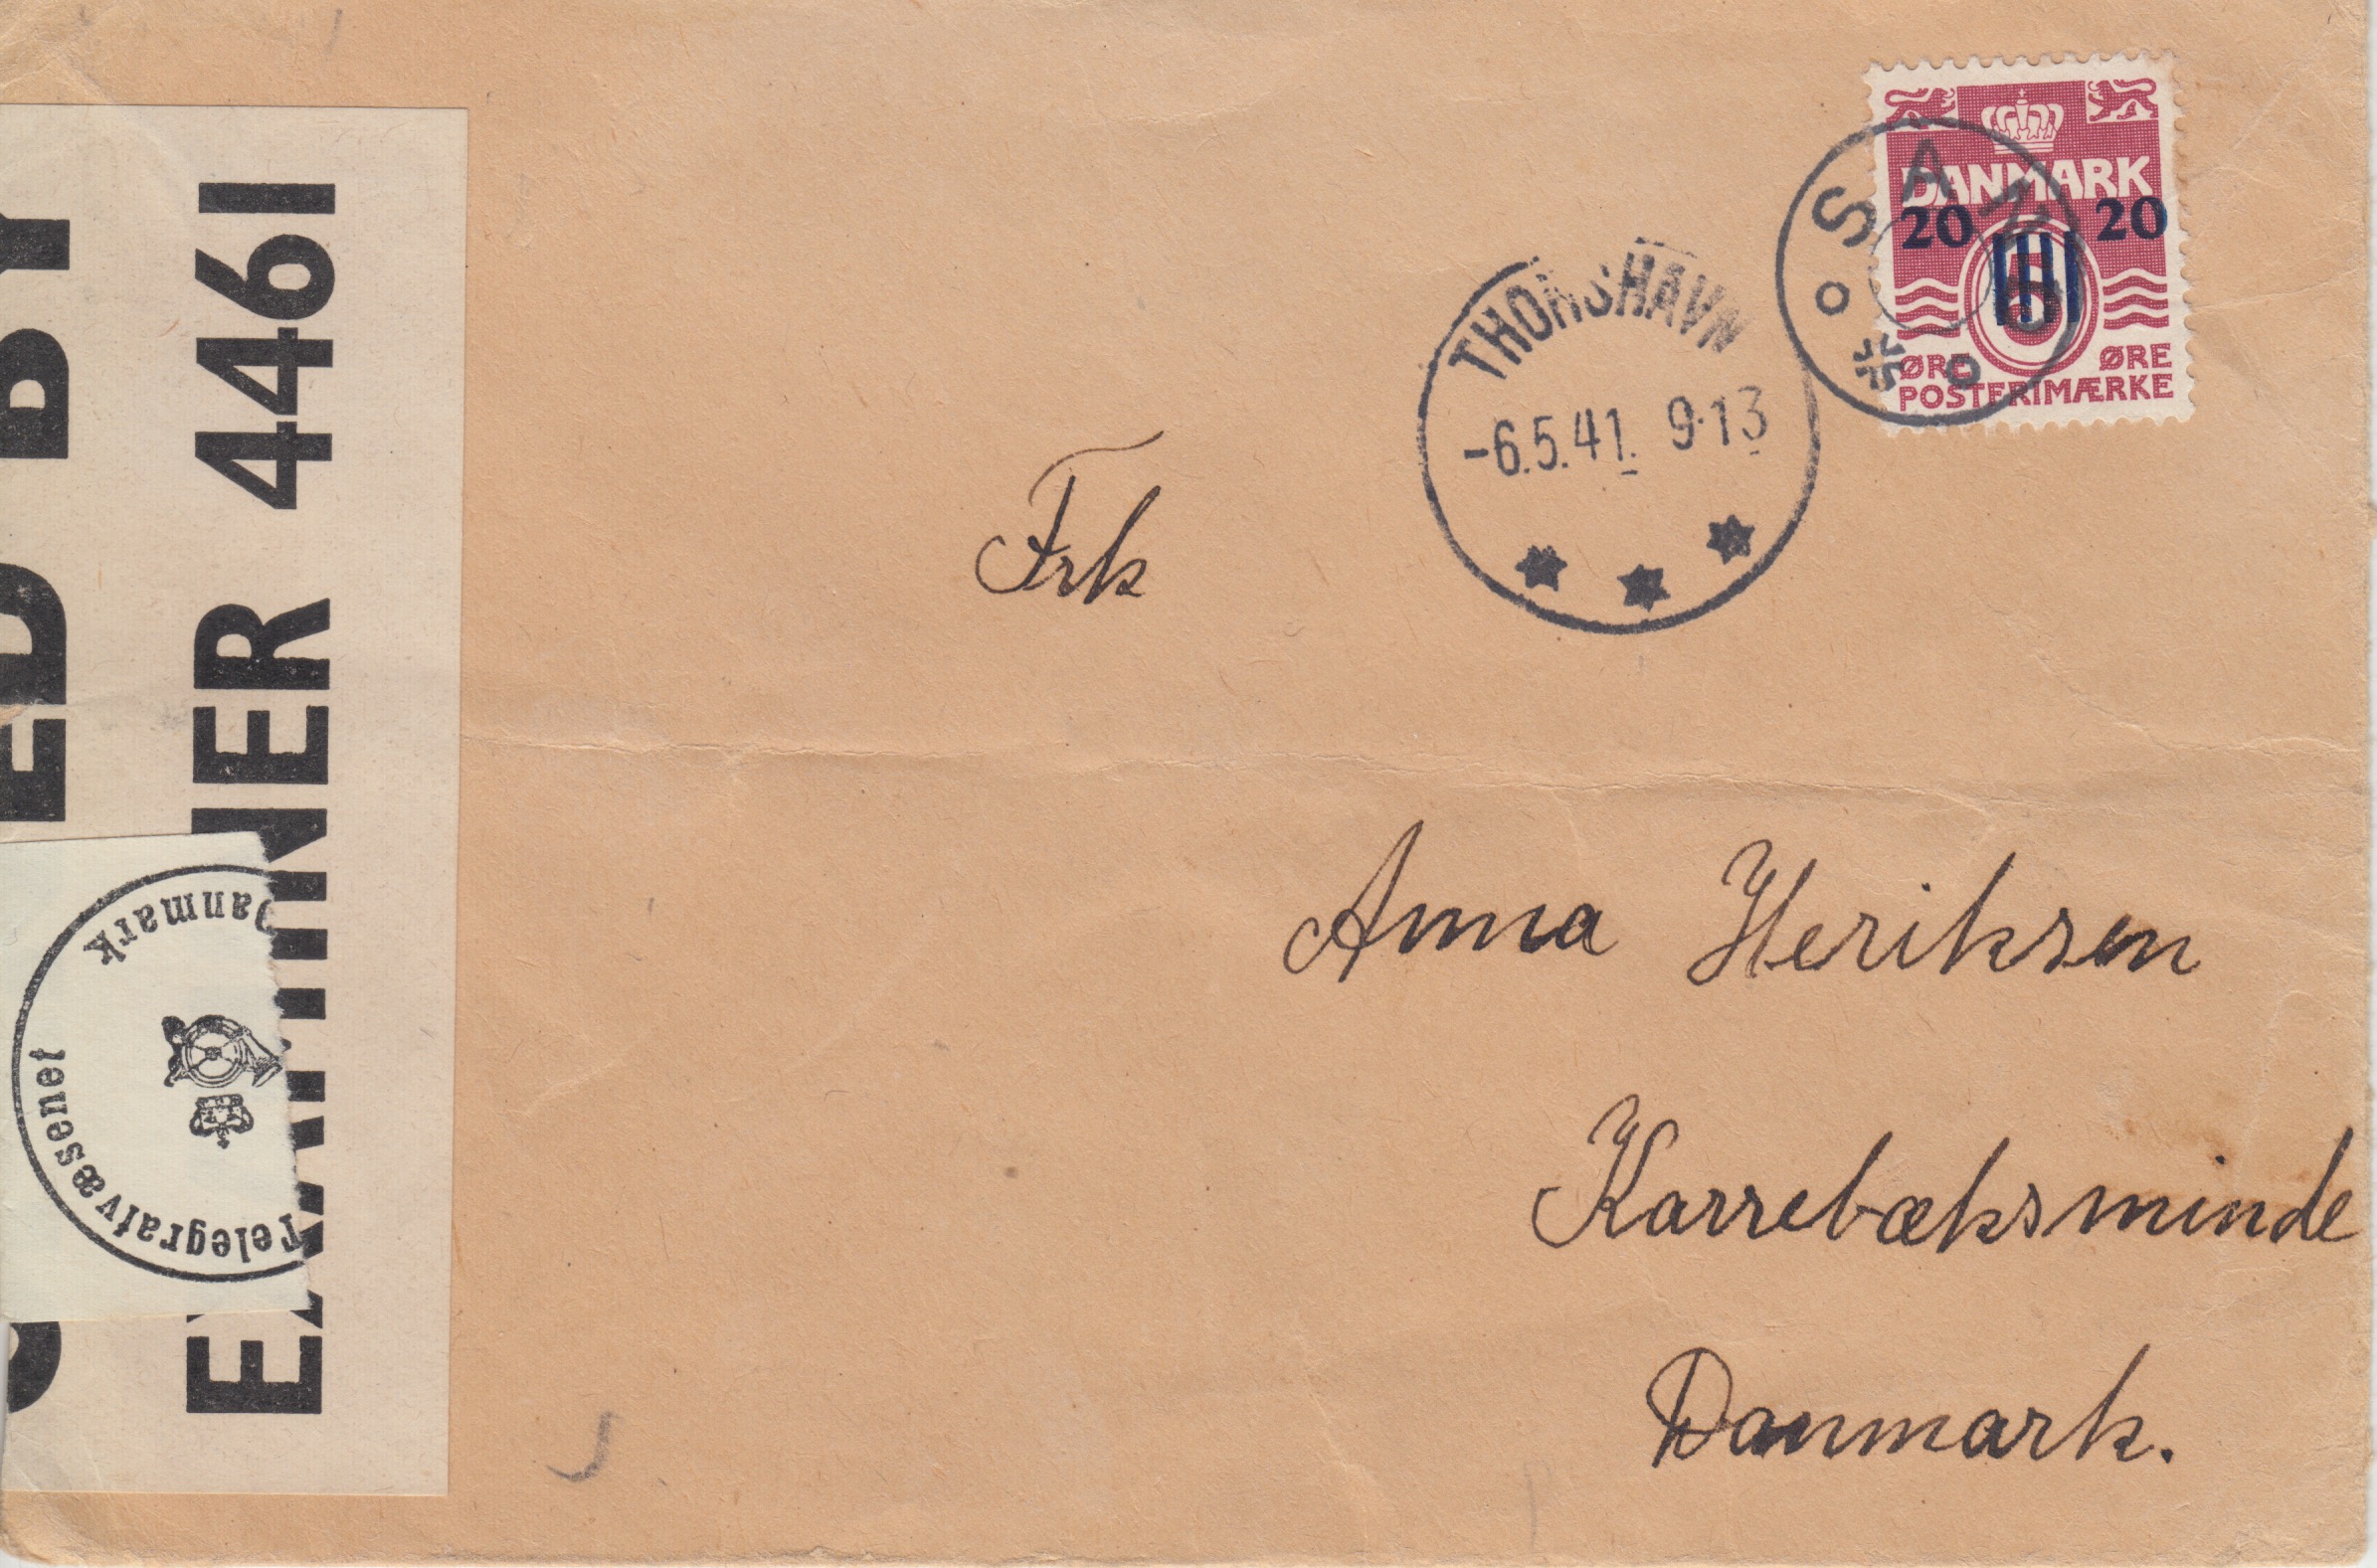 DANMARK
20 20
5
ØRE ØRE
POSTFRIMÆRKE
THORSHAVN
-6.5.41. 9-13
Frk
Anna Heriksen
Karrebæksminde
Danmark.
ED BY
EXAMINER 4461
Telegrafvæsenet
Danmark